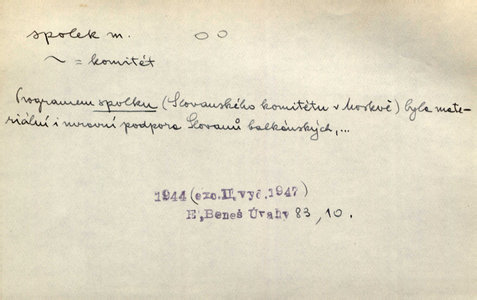 spolek m. OO
~ = komitét
Programem spolku (Slovanského komitétu v Moskvě) byla mate-
riální i mravní podpora Slovanů balkánských,...
1944 (exc.II,vyd.1947)
E,Beneš Úvahy 83,10.